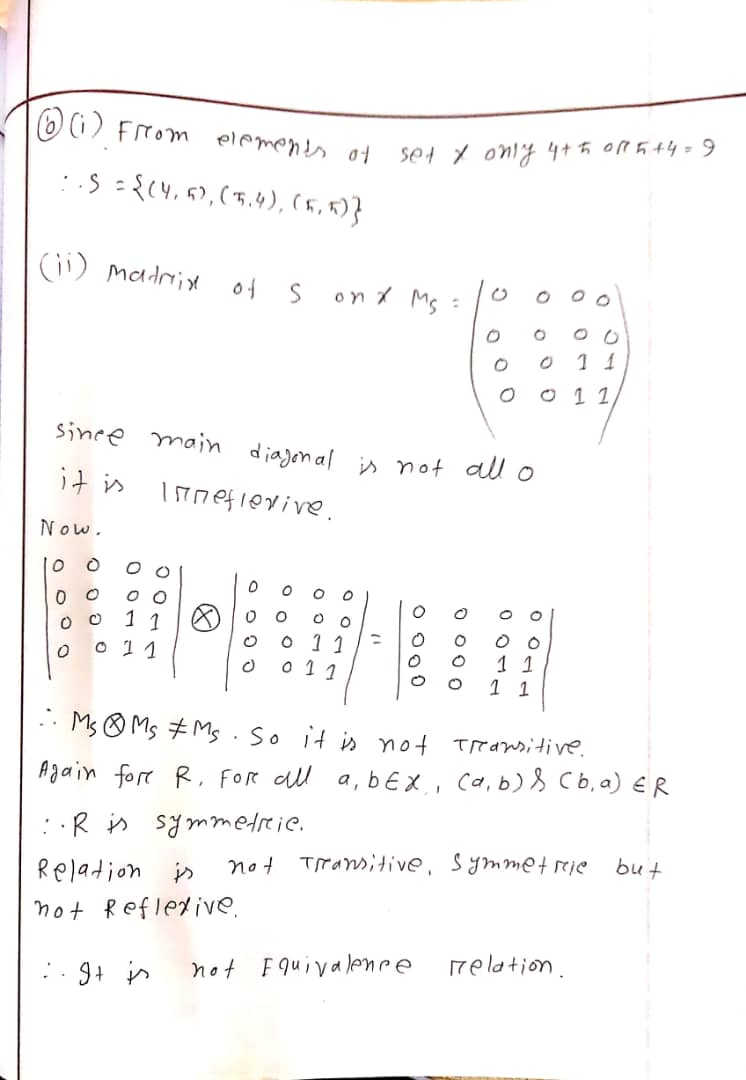 ⓑ (i) From elements of set X only 4+5 or 5+4 = 9
∴ S = {(4,5), (5,4), (5,5)}
(ii) Matrix of S on X Ms = (0 0 0 0
0 0 0 0
0 0 1 1
0 0 1 1)
since main diagonal is not all 0
it is Irreflexive.
Now.
|0 0 0 0| ⊗ |0 0 0 0| = |0 0 0 0|
|0 0 0 0| |0 0 0 0| |0 0 0 0|
|0 0 1 1| |0 0 1 1| |0 0 1 1|
|0 0 1 1| |0 0 1 1| |0 0 1 1|
∴ Ms ⊗ Ms ≠ Ms . So it is not Transitive.
Again for R, For all a, b ∈ X, (a, b) & (b, a) ∈ R
∴ R is symmetric.
Relation is not Transitive, Symmetric but
not Reflexive.
∴ It is not Equivalence relation.